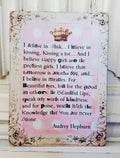 I believe in Pink... I believe in
kissing, Kissing a lot... And I
believe Happy girls are the
prettiest girls. I believe that
tomorrow is Another day, and...
I believe in Miracles. For
Beautiful eyes, look for the good
in others; for Beautiful lips,
speak only words of kindness;
and for poise, walk with the
Knowledge that You are Never
Alone
Audrey Hepburn